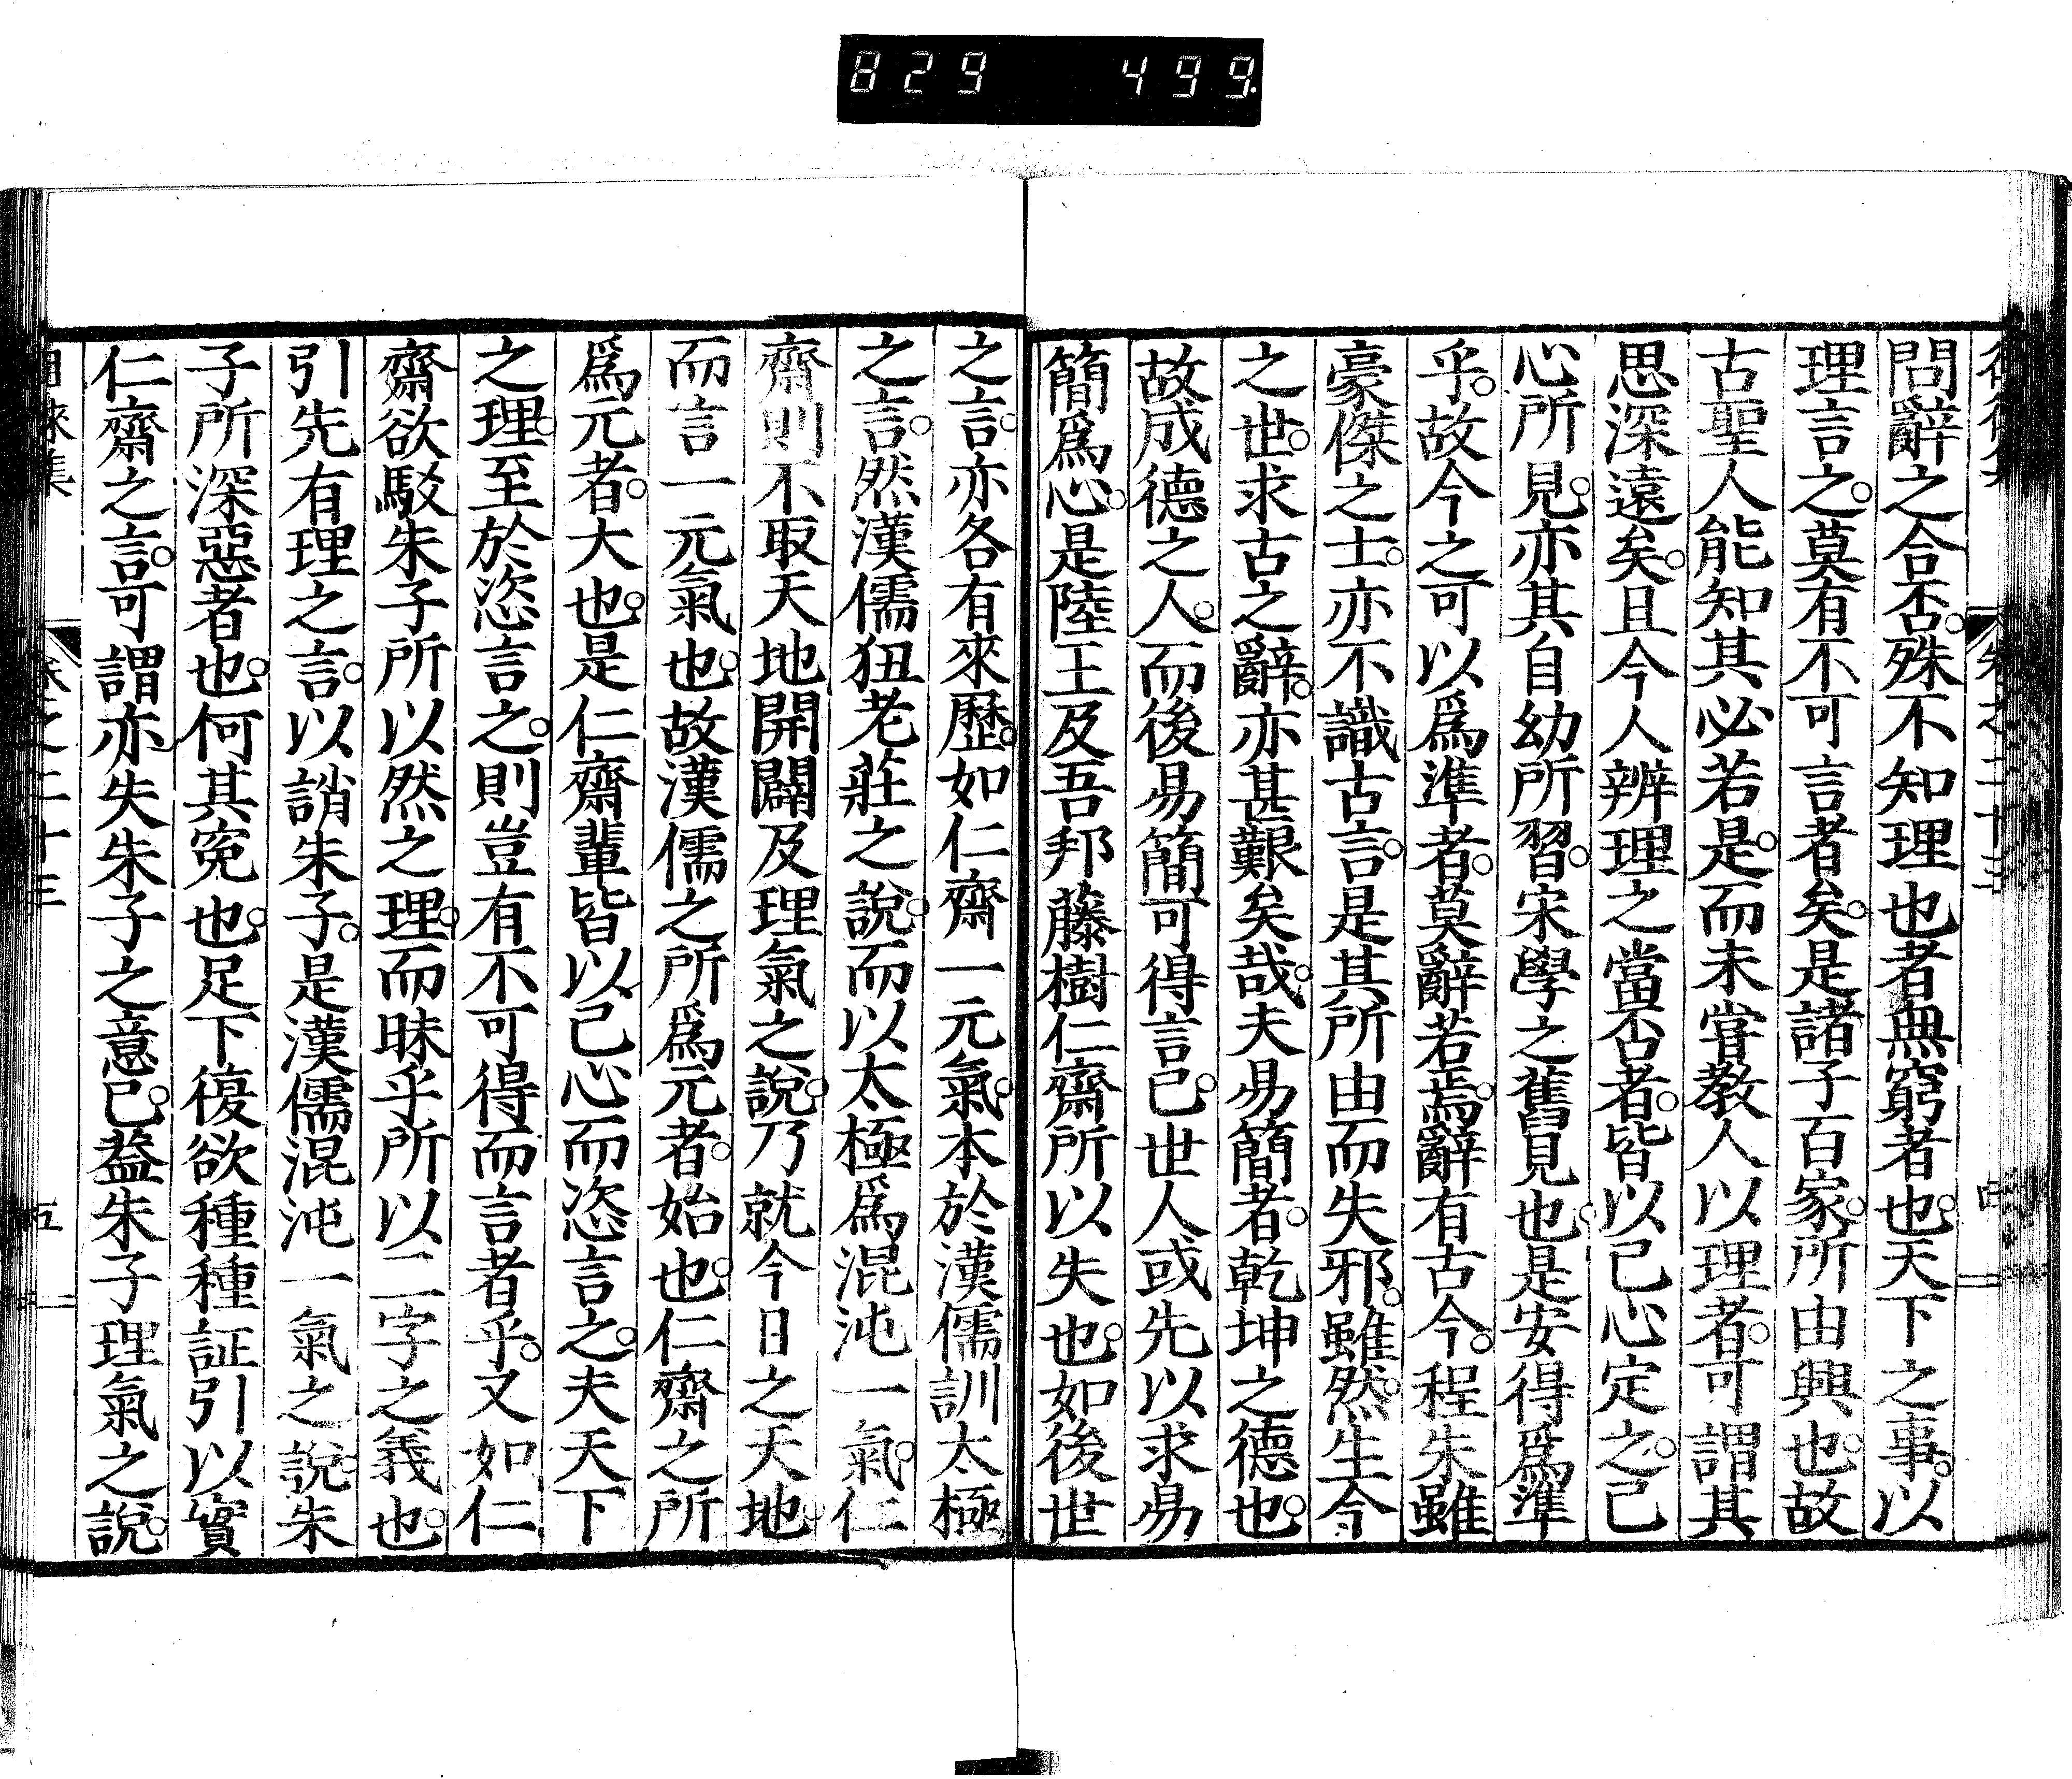 829 499
問辭之合否。殊不知理也者無窮者也。天下之事。以
理言之。莫有不可言者矣。是諸子百家。所由興也。故
古聖人能知其必若是。而未甞教人以理者。可謂其
思深遠矣。且今人辨理之當否者。皆以己心定之。己
心所見。亦其自幼所習。宋學之舊見也。是安得爲準
乎。故今之可以爲準者。莫辭若焉。辭有古今。程朱雖
豪傑之士。亦不識古言。是其所由而失邪。雖然。生今
之世。求古之辭。亦甚艱矣哉。夫易簡者。乾坤之德也。
故成德之人。而後易簡可得言已。世人或先以求易
簡爲心。是陸王及吾邦藤樹仁齋所以失也。如後世
之言。亦各有來歷。如仁齋一元氣。本於漢儒訓太極
之言。然漢儒狃老莊之說。而以太極爲混沌一氣。仁
齋則不取天地開闢及理氣之說。乃就今日之天地。
而言一元氣也。故漢儒之所爲元者。始也。仁齋之所
爲元者。大也。是仁齋輩皆以己心而恣言之。夫天下
之理。至於恣言之。則豈有不可得而言者乎。又如仁
齋欲駁朱子所以然之理。而昧乎所以二字之義也。
引先有理之言。以誚朱子。是漢儒混沌一氣之說。朱
子所深惡者也。何其寃也。足下復欲種種証引以實
仁齋之言。可謂亦失朱子之意已。蓋朱子理氣之說。
卷之二十三
五